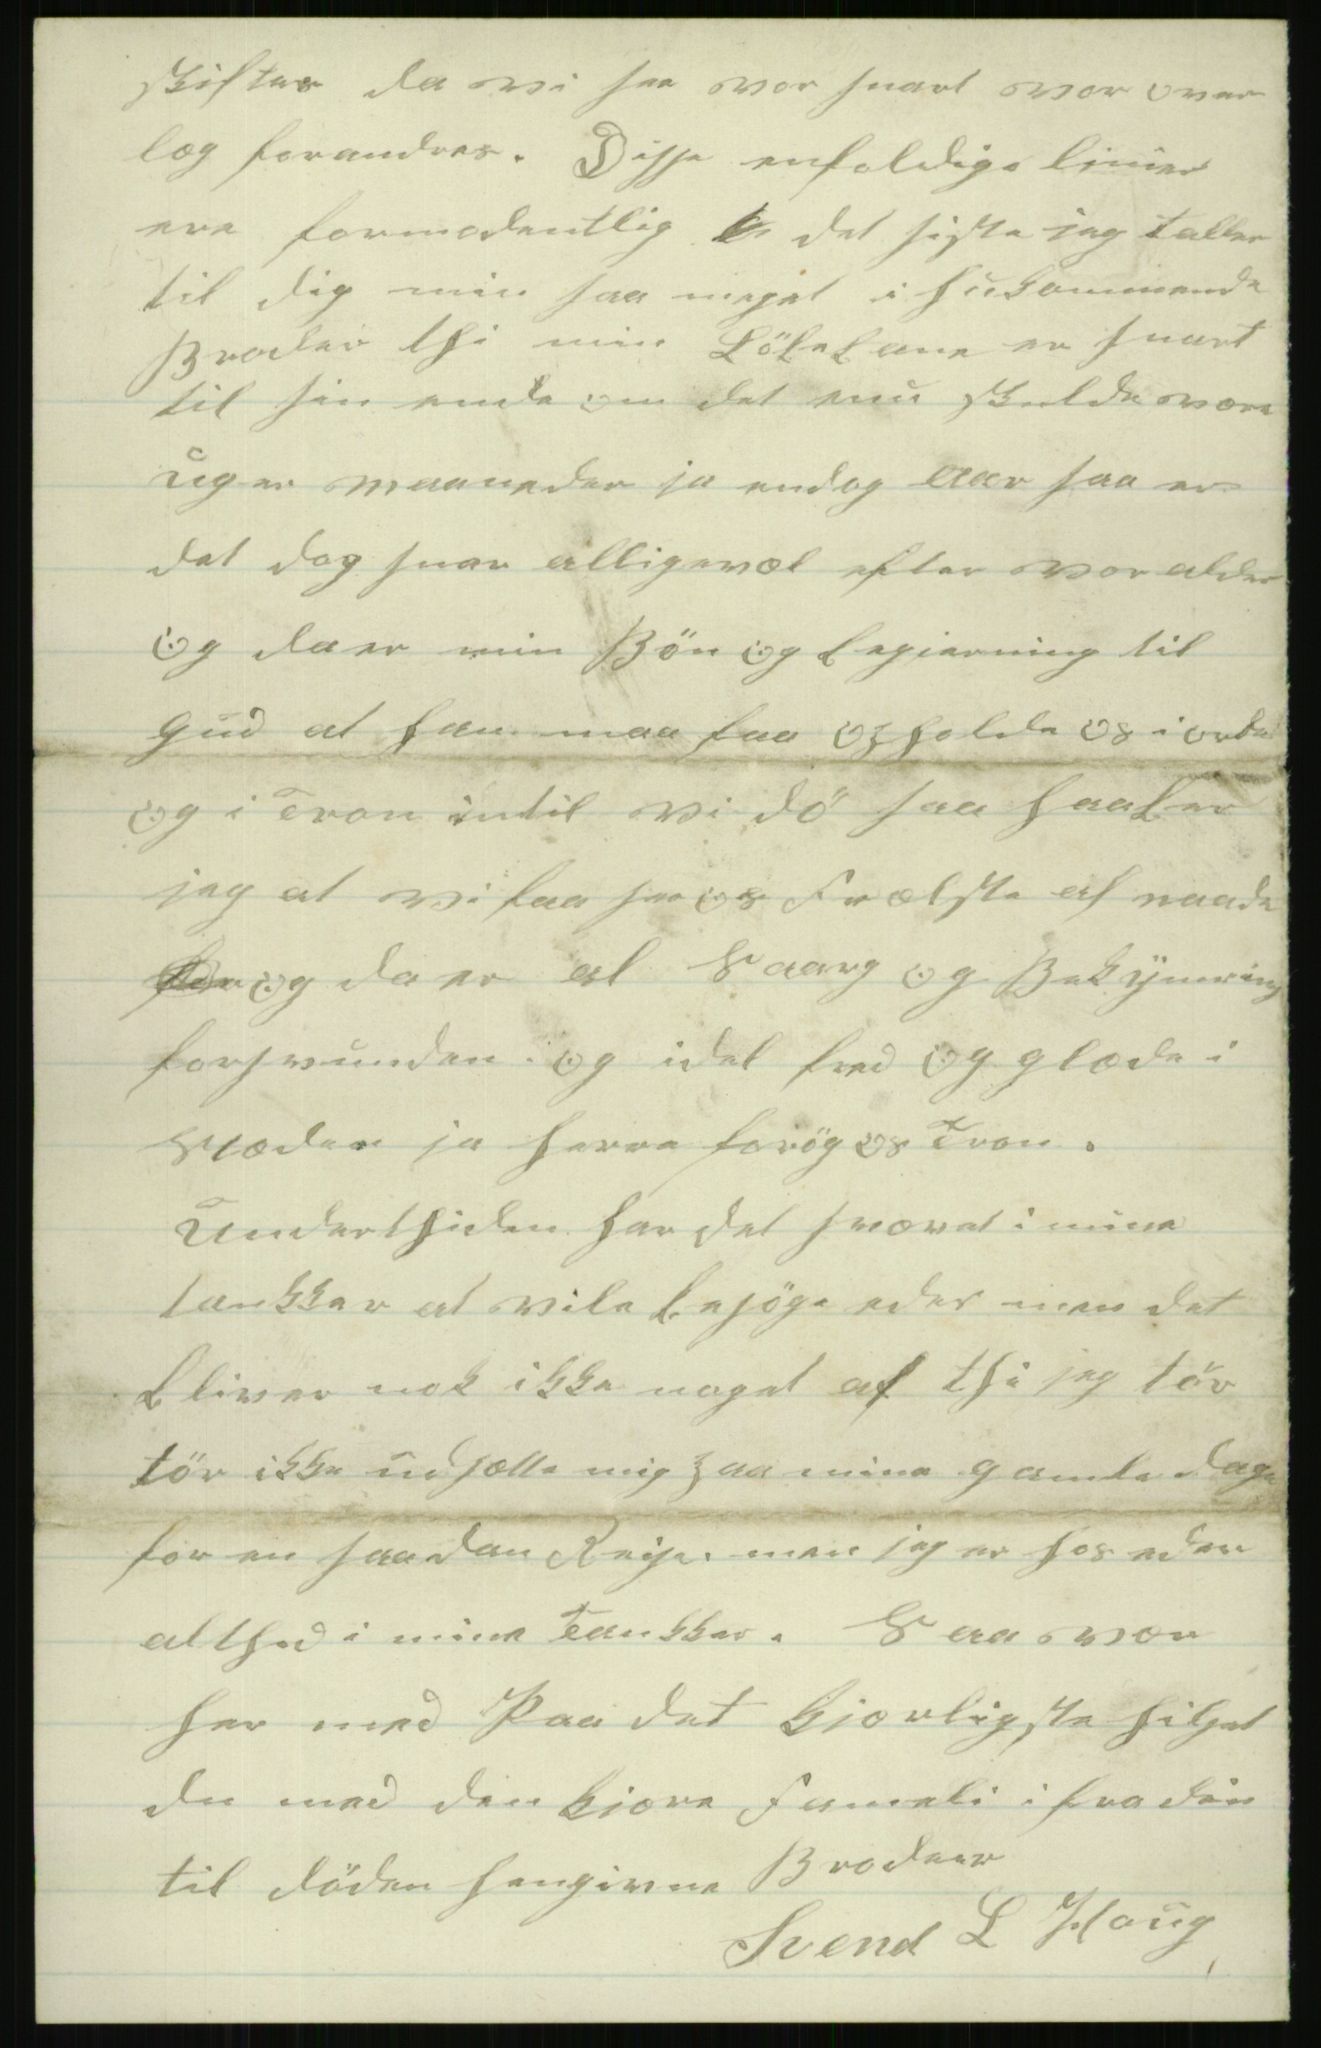 skifter da vi see vor snart vor over
læg forandres. Disse enfoldige linier
ere formodentlig det siste jeg taller
til dig min saa meget i hukommende
Broder thi min Löbebane er snart
til sin ende om det enu skulde være
uger maaneder ja endog aar saa er
det dog snar alligevæl efter vor alder
og da er min Bön og begierning til
Gud at han maa faa opholde os i ordet
og i Troen intil vi dö saa haaber
jeg at vi faa see os Frælste af naade
og da er al Saarg og Bekÿmring
forsvunden og idel fred og glæde i
Stæden ja herre forög os Troen.
Underthiden har det svævet i mine
tankker at vile besöge eder men det
bliver nok ikke noget af thi jeg tör
tör ikke udsætte mig paa mine gamle dage
for en saadan Reise. men jeg er hos eder
althid i mine Tankker. Saa vær
her med Paa det kjærligste hilset
du med den kjære Fameli i fra din
til döden hengivne Brodeer
Svend L Haug